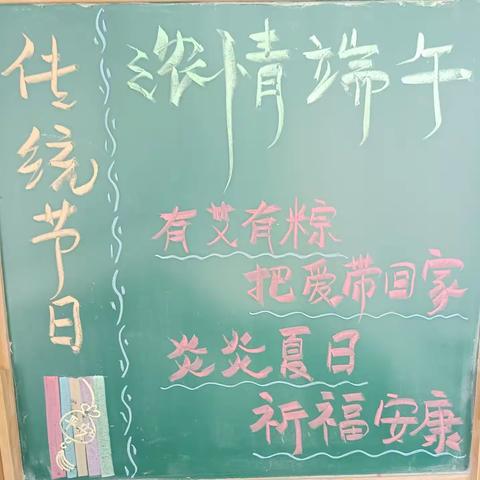 传统节日
浓情端午
有艾有粽
把爱带回家
炎炎夏日
祈福安康